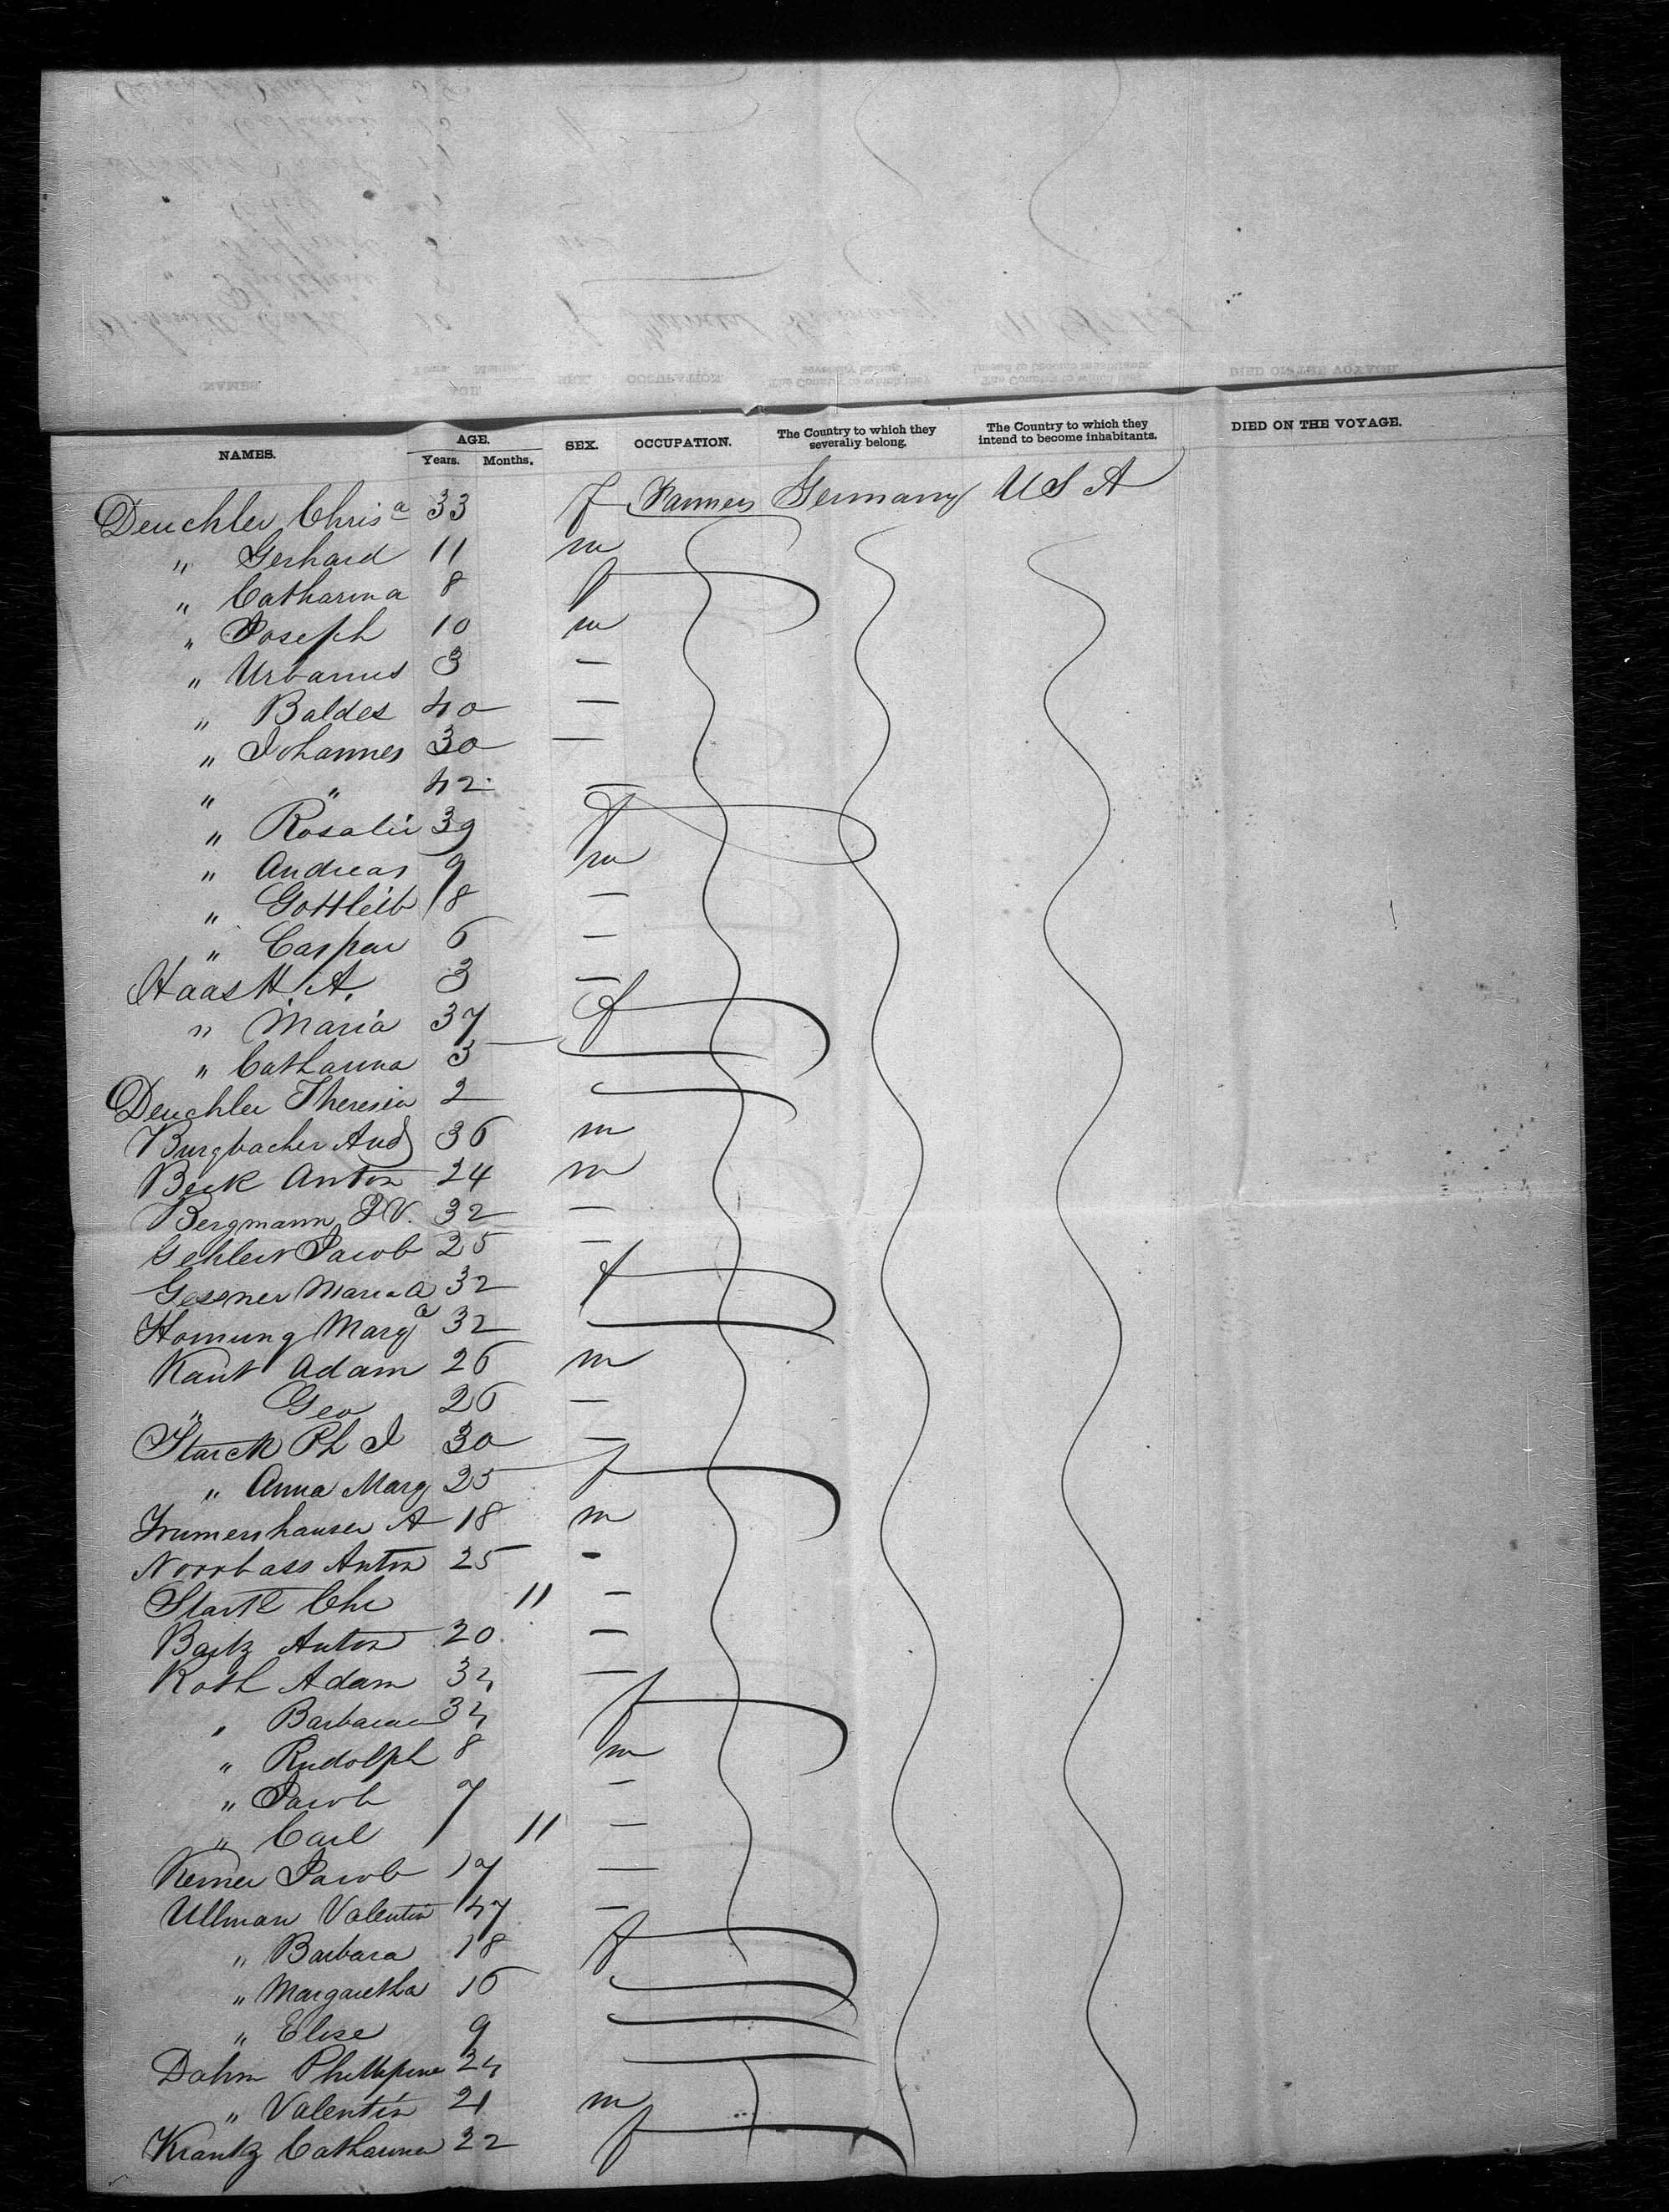 NAMES. AGE. Years. Months. SEX. OCCUPATION. The Country to which they severally belong. The Country to which they intend to become inhabitants. DIED ON THE VOYAGE.
Deuchler Chrisa 33 f Farmers Germany U S A
" Gerhard 11 m
" Catharina 8 f
" Joseph 10 m
" Urbanus 3 —
" Baldes 40 —
" Johannes 30 —
" " 42 —
" Rosalie 39 f
" Andreas 9 m
" Gottleib 18 —
" Caspar 6 —
Haas H. A. 3 —
" Maria 37 f
" Catharina 3
Deuchler Theresia 2
Burgbacher And 36 m
Beck Anton 24 m
Bergmann J V. 32 —
Gehlert Jacob 25 —
Gessner Maria A 32 f
Hornung Marga 32
Kant Adam 26 m
" Geo 26 —
Starck Ph J 30 —
" Anna Marg 25 f
Irumershauser A 18 m
Norrbass Anton 25 -
Stark Chr 11 —
Bartz Anton 20 —
Roth Adam 34 —
" Barbara 34 f
" Rudolph 8 m
" Jacob 7 —
" Carl / 11 —
Kerner Jacob 17 —
Ullman Valentin 47 —
" Barbara 18 f
" Margaretha 16
" Elise 9
Dahm Phillipine 24
" Valentin 21 m
Krantz Catharina 22 f